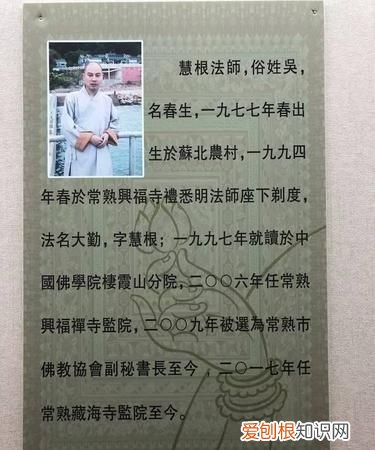 慧根法師，俗姓吳，
名春生，一九七七年春出
生於蘇北農村，一九九四
年春於常熟興福寺禮悉明法師座下剃度，
法名大勤，字慧根；一九九七年就讀於中
國佛學院棲霞山分院，二〇〇六年任常熟
興福禪寺監院，二〇〇九年被選為常熟市
佛教協會副秘書長至今，二〇一七年任
常熟藏海寺監院至今。
爱刨根知识网